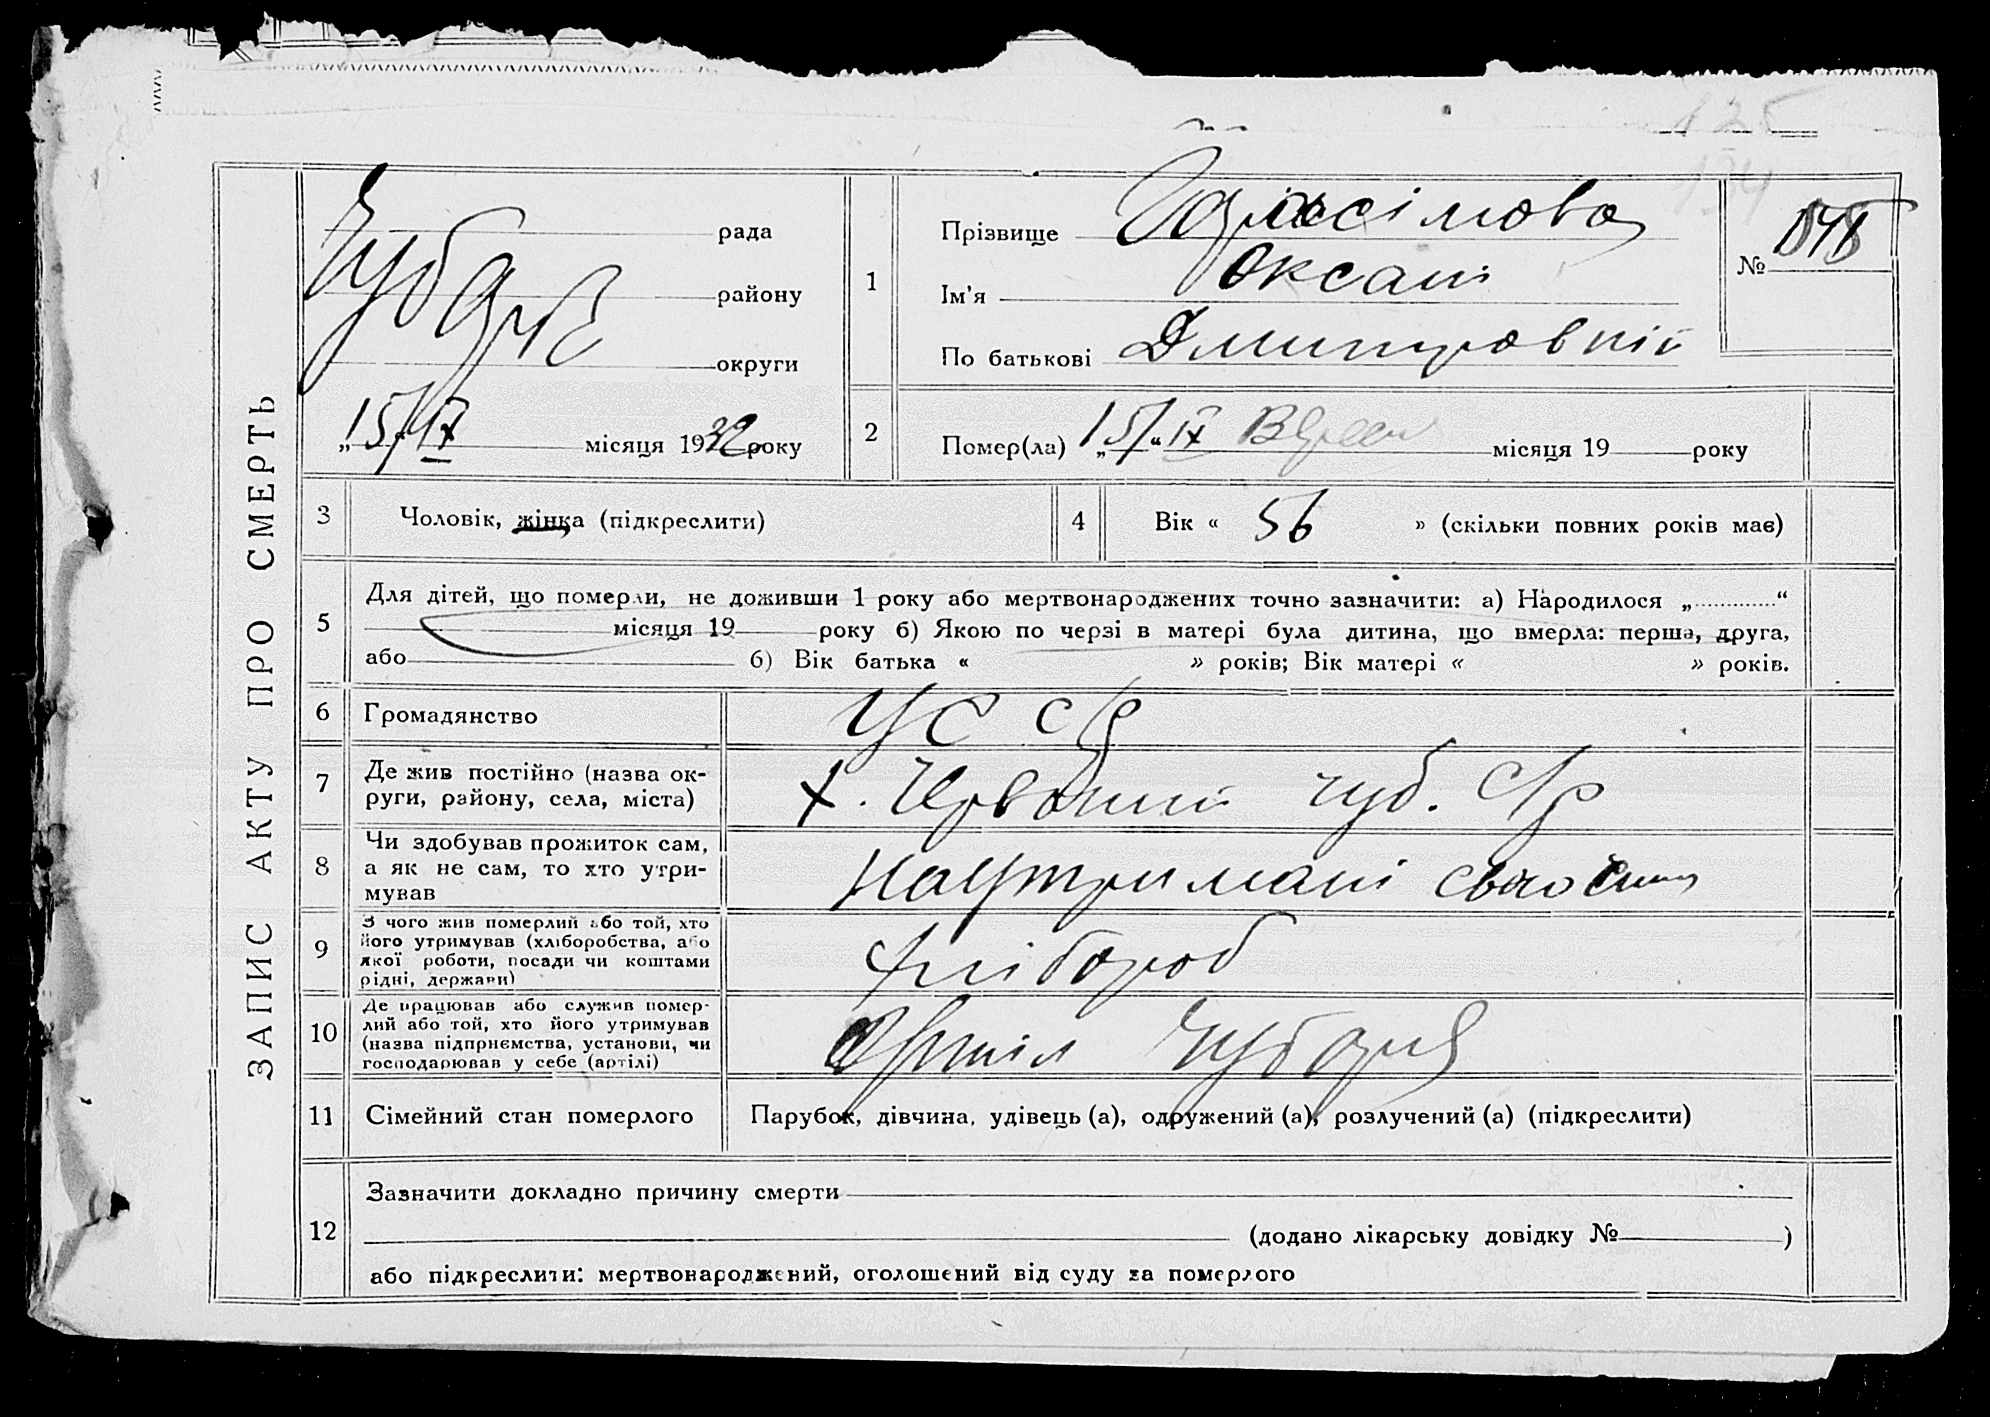 ЗАПИС АКТУ ПРО СМЕРТЬ
рада
району
округи
Чубарів
„15/“ IX місяця 1932 року
1
Прізвище
Ім'я Оксані
По батькові Дмитровній
№
2
Помер(ла) „15/“ IX місяця 19 року
3
Чоловік, жінка (підкреслити)
4
Вік « 56 » (скільки повних років має)
5
Для дітей, що померли, не доживши 1 року або мертвонароджених точно зазначити: а) Народилося „ “
місяця 19 року б) Якою по черзі в матері була дитина, що вмерла: перша, друга,
або б) Вік батька « » років; Вік матері « » років.
6
Громадянство
УССР
7
Де жив постійно (назва ок-
руги, району, села, міста)
х. Червоний Чуб. с/р
8
Чи здобував прожиток сам,
а як не сам, то хто утри-
мував
На утримані
9
З чого жив померлий або той, хто
його утримував (хліборобства, або
якої роботи, посади чи коштами
рідні, держави)
хлібороб
10
Де працював або служив помер-
лий або той, хто його утримував
(назва підприємства, установи, чи
господарював у себе (артілі)
Артіл Чубаря
11
Сімейний стан померлого
Парубок, дівчина, удівець (а), одружений (а), розлучений (а) (підкреслити)
12
Зазначити докладно причину смерти
(додано лікарську довідку № )
або підкреслити: мертвонароджений, оголошений від суду за померлого